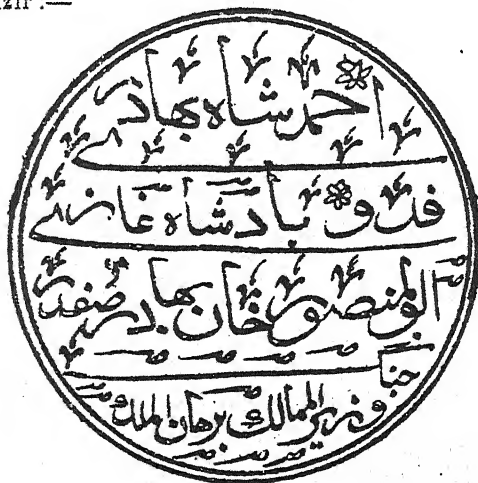 izir :—
احمد شاه بهادر
فدوی بادشاه غازی
ابوالمنصور خان بهادر صفدر
جنگ
وزیر الممالک برهان الملک